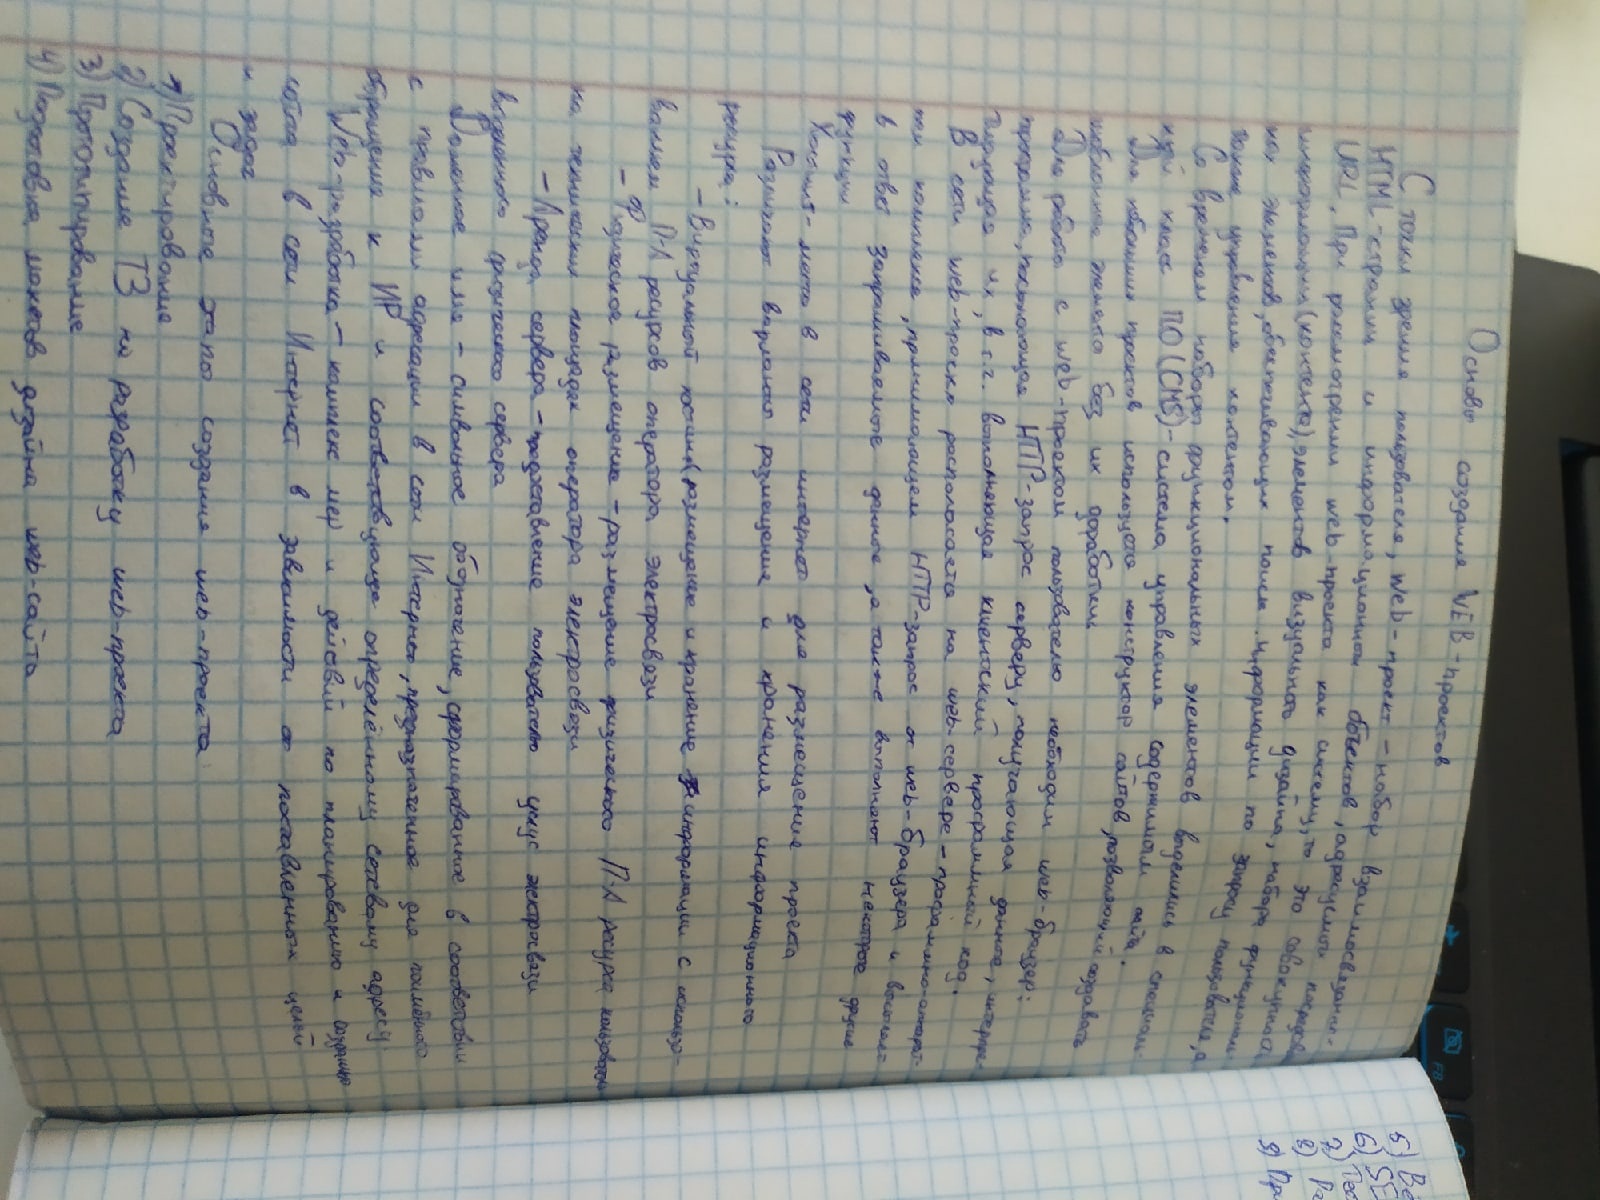 Основы создания WEB-проектов
С точки зрения пользователя, web-проект - набор взаимосвязанн-
HTML-страниц и информационных объектов, адресуемых посредством
URL. При рассмотрении web-проекта как систему, то это совокупность
информации (контента), элементов визуального дизайна, набора функциональ-
ных элементов, обеспечивающих поиск информации по запросу пользователя, а
также управления контентом.
Со временем наборы функциональных элементов выделились в специаль-
ный класс ПО (CMS) - система управления содержимым сайта.
Для небольших проектов используется конструктор сайтов, позволяющий создавать
шаблонные элементы без их доработки.
Для работы с web-проектом пользователю необходим web-браузер:
программа, посылающая HTTP-запрос серверу, получающая данные, интерпре-
тирующая их, в т.ч. выполняющая клиентский программный код.
В сети web-проект располагается на web-сервере - программно-аппарат-
ном комплексе, принимающем HTTP-запрос от web-браузера и высылает
в ответ запрашиваемые данные, а также выполняют некоторые другие
функции
Хостинг - место в сети интернет для размещение проекта
Различают варианты размещение и хранения информационного
ресурса:
- Виртуальный хостинг (размещение и хранение информации с использо-
ванием П-А ресурсов оператора электросвязи
- Физическое размещение - размещение физического П-А ресурса пользователя
на технических площадях оператора электросвязи
- Аренда сервера - предоставление пользователю услуг электросвязи
выделенного физического сервера
Доменное имя - символьное обозначение, сформированное в соответствии
с правилами адресации в сети Интернет, предназначенное для поимённого
обращения к ИР и соответсвующее определённому сетевому адресу.
Web-разработка - комплекс мер и действий по планированию и созданию
сайта в сети Интернет в зависимости от поставленных целей
и задач
Основные этапы создания web-проекта
1) Проектирование
2) Создание ТЗ на разработку web-проекта
3) Прототипирование
4) Подготовка макетов дизайна web-сайта
5)
6) SE
7)
8)
9) При
F8